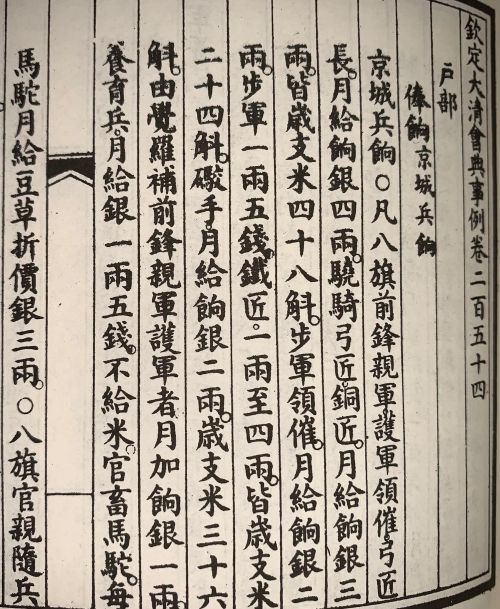 欽定大清會典事例卷二百五十四
戸部
俸餉京城兵餉
京城兵餉○凡八旗前鋒親軍護軍領催弓匠
長。月給餉銀四兩。驍騎弓匠。銅匠。月給餉銀三
兩。皆歲支米四十八斛。步軍領催。月給餉銀二
兩。步軍一兩五錢。鐵匠。一兩至四兩。皆歲支米
二十四斛。礮手。月給餉銀二兩。歲支米三十六
斛。由覺羅補前鋒親軍護軍者。月加餉銀一兩。
養育兵。月給銀一兩五錢。不給米。官畜馬駝。每
馬駝月給豆草折價銀三兩。○八旗官親隨兵